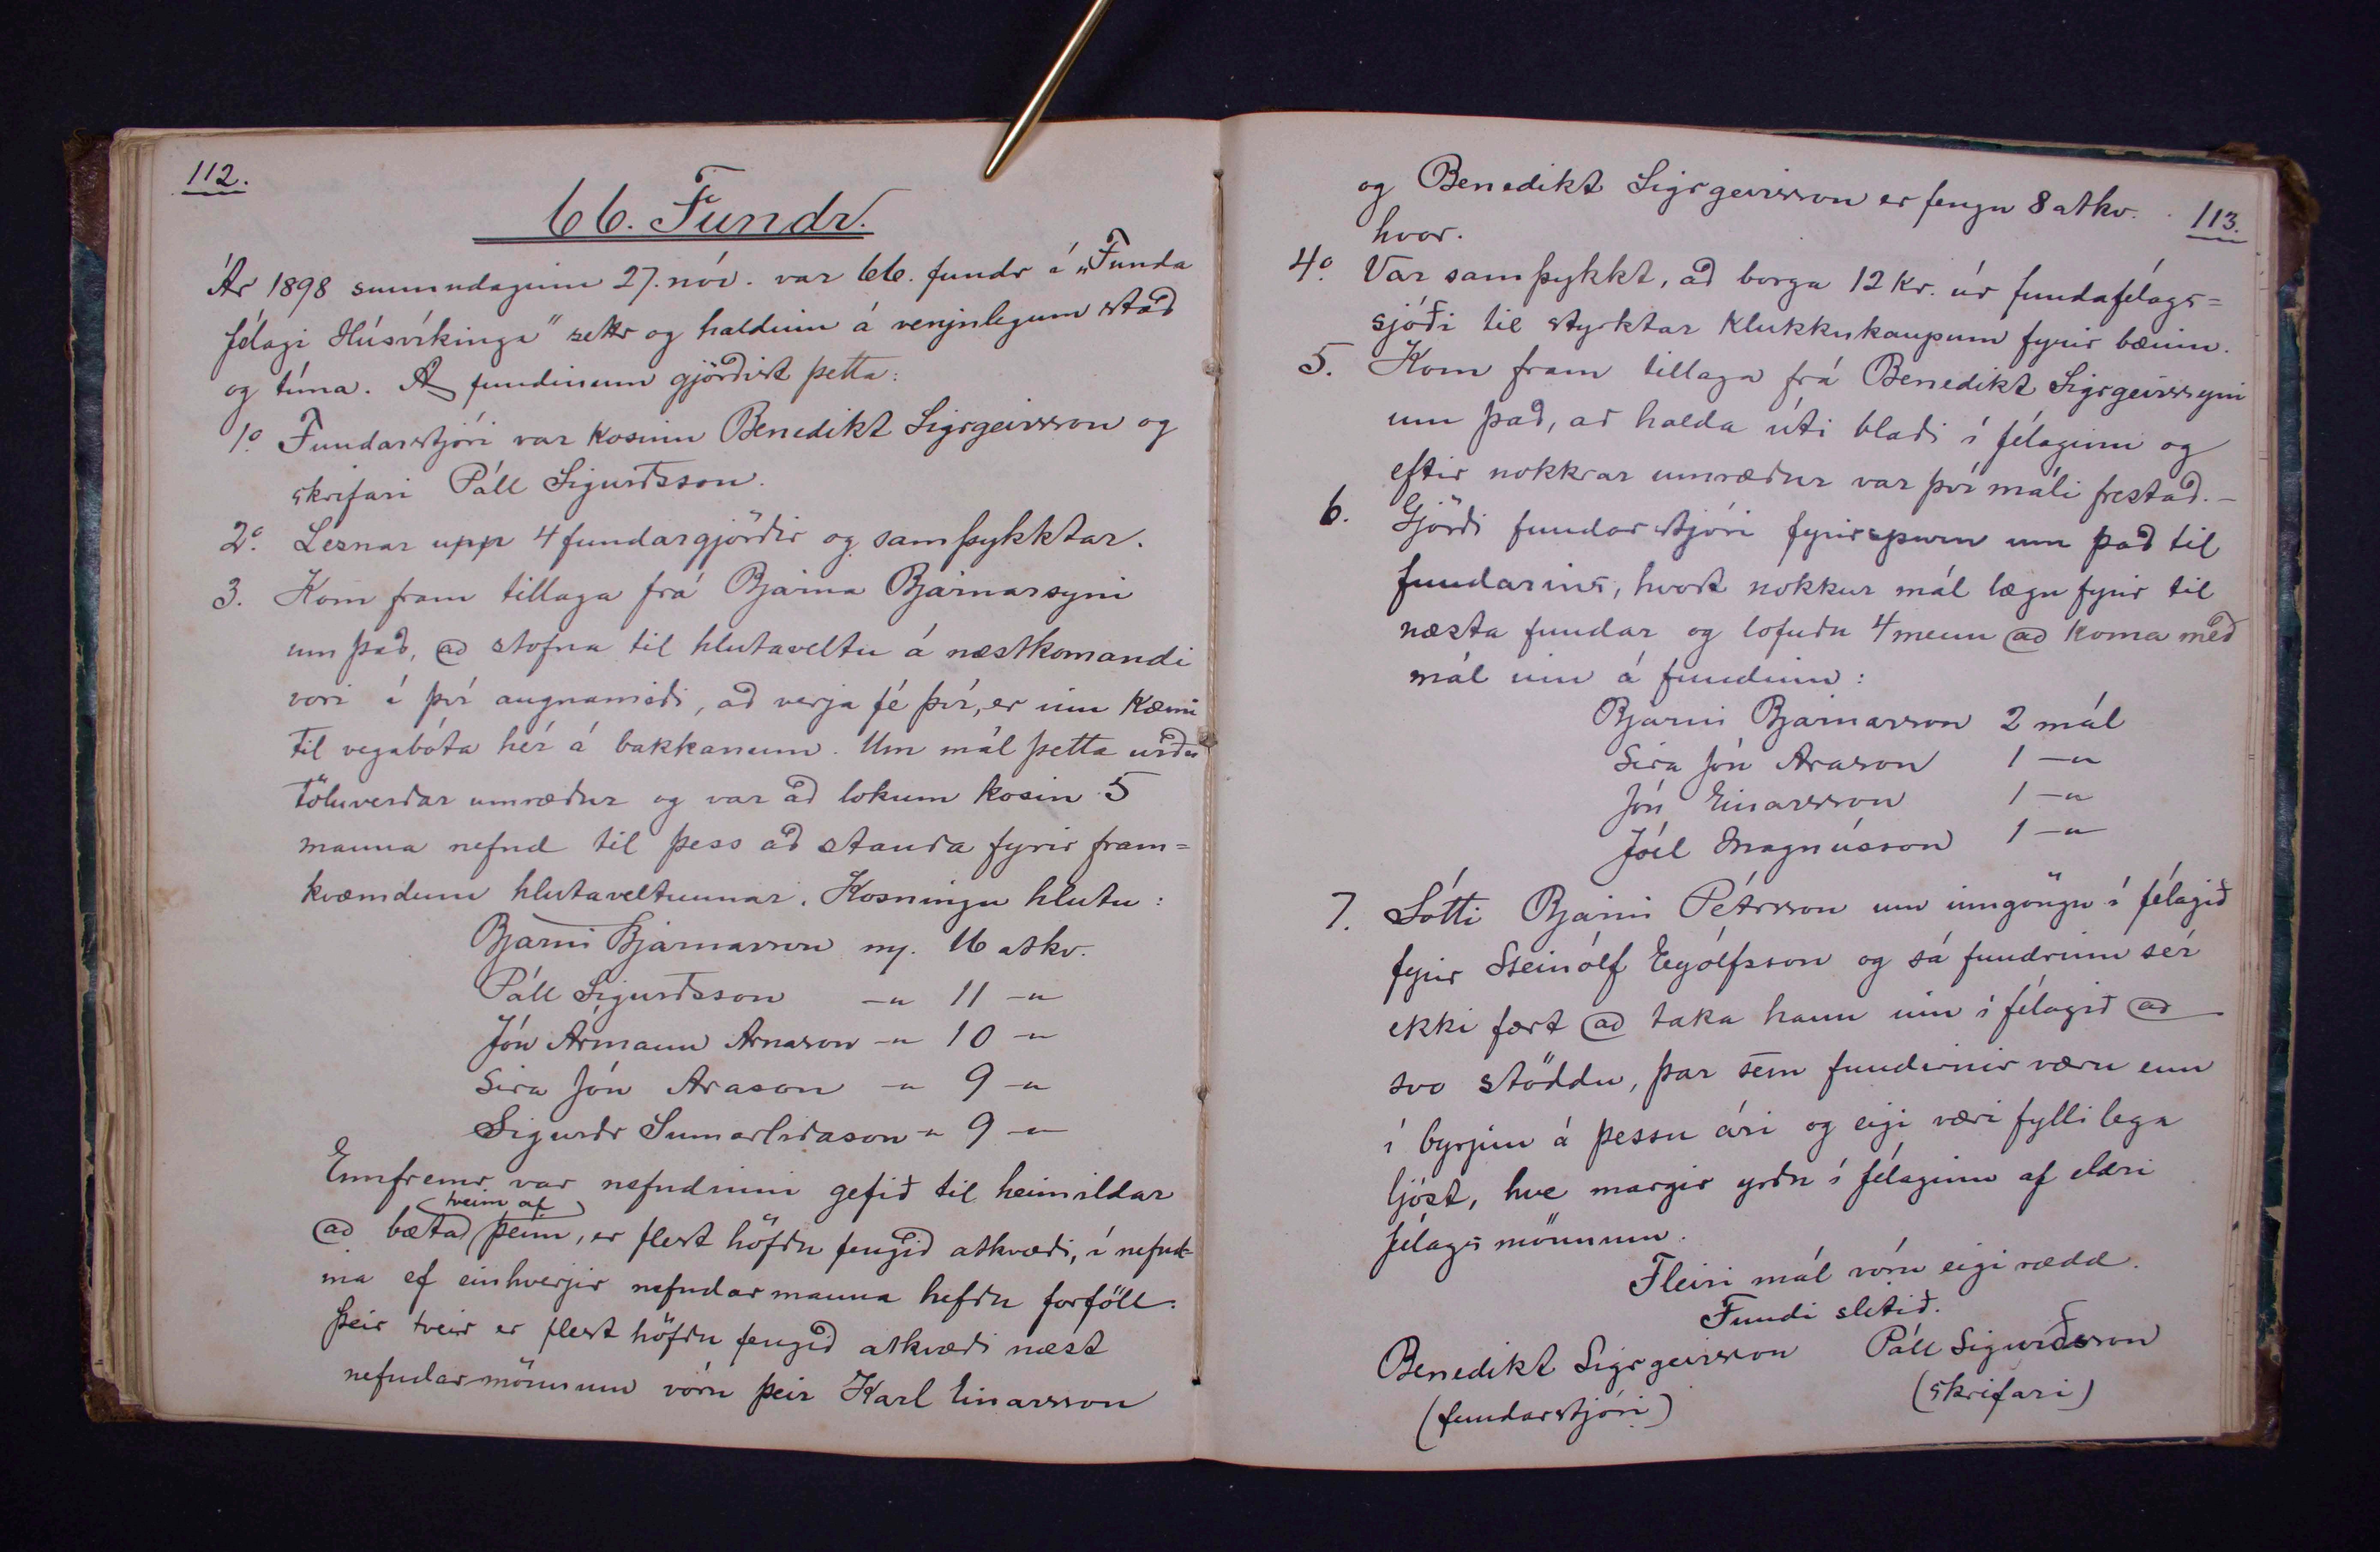 112.
66. Fundr.
Ár 1898 sunnudaginn 27. nóv. var 66. fundr í „Funda
félagi Húsvíkinga" settr og haldinn á venjulegum stað
og tíma. Á fundinum gjörðist þetta:
1º. Fundarstjóri var kosinn Benedikt Sigrgeirsson og
skrifari Páll Sigurðsson.
2º. Lesnar upp 4 fundargjörðir og samþykktar.
3. Kom fram tillaga frá Bjarna Bjarnarsyni
um það, að stofna til hlutaveltu á næstkomandi
vori í því augnamiði, að verja fé því, er inn kæmi
til vegabóta hér á bakkanum. Um mál þetta urðu
töluverðar umræður og var að lokum kosin 5
manna nefnd til þess að standa fyrir fram=
kvæmdum hlutaveltunnar. Kosningu hlutu:
Bjarni Bjarnarson m. 16 atkv.
Páll Sigurðsson -„ 11 -„
Jón Ármann Arnason -„ 10 -„
Síra Jón Arason -„ 9 -„
Sigurðr Sumarliðason -„ 9 -„
Ennfremr var nefndinni gefið til heimildar
tveim af
að bæta þeim, er flest höfðu fengið atkvæði, í nefnd-
ina ef einhverjir nefndarmanna hefðu forföll.
Þeir tveir er flest höfðu fengið atkvæði næst
nefndarmönnum vóru þeir Karl Einarsson
113.
og Benedikt Sigrgeirsson er fengu 8 atkv.
hvor.
4º. Var samþykkt, að borga 12 kr. úr fundafélags=
sjóði til styrktar klukkukaupum fyrir bæinn.
5. Kom fram tillaga frá Benedikt Sigrgeirssyni
um það, að halda úti blaði í félaginu og
eftir nokkrar umræður var því máli frestað. -
6. Gjörði fundarstjóri fyrirspurn um það til
fundarins, hvort nokkur mál lægu fyrir til
næsta fundar og lofuðu 4 menn að koma með
mál inn á fundinn:
Bjarni Bjarnarson 2 mál
Síra Jón Arason 1 -„
Jón Einarsson 1 -„
Jóel Magnússon 1 -„
7. Sótti Bjarni Pétrsson um inngöngu í félagið
fyrir Steinólf Eyólfsson og sá fundrinn sér
ekki fært að taka hann inn í félagið að
svo stöddu, þar sem fundirnir væru enn
í byrjun á þessu ári og eigi væri fyllilega
ljóst, hve margir yrðu í félaginu af eldri
félagsmönnum.
Fleiri mál vóru eigi rædd.
Fundi slitið.
Benedikt Sigrgeirsson Páll Sigurðsson
(fundarstjóri) (skrifari)